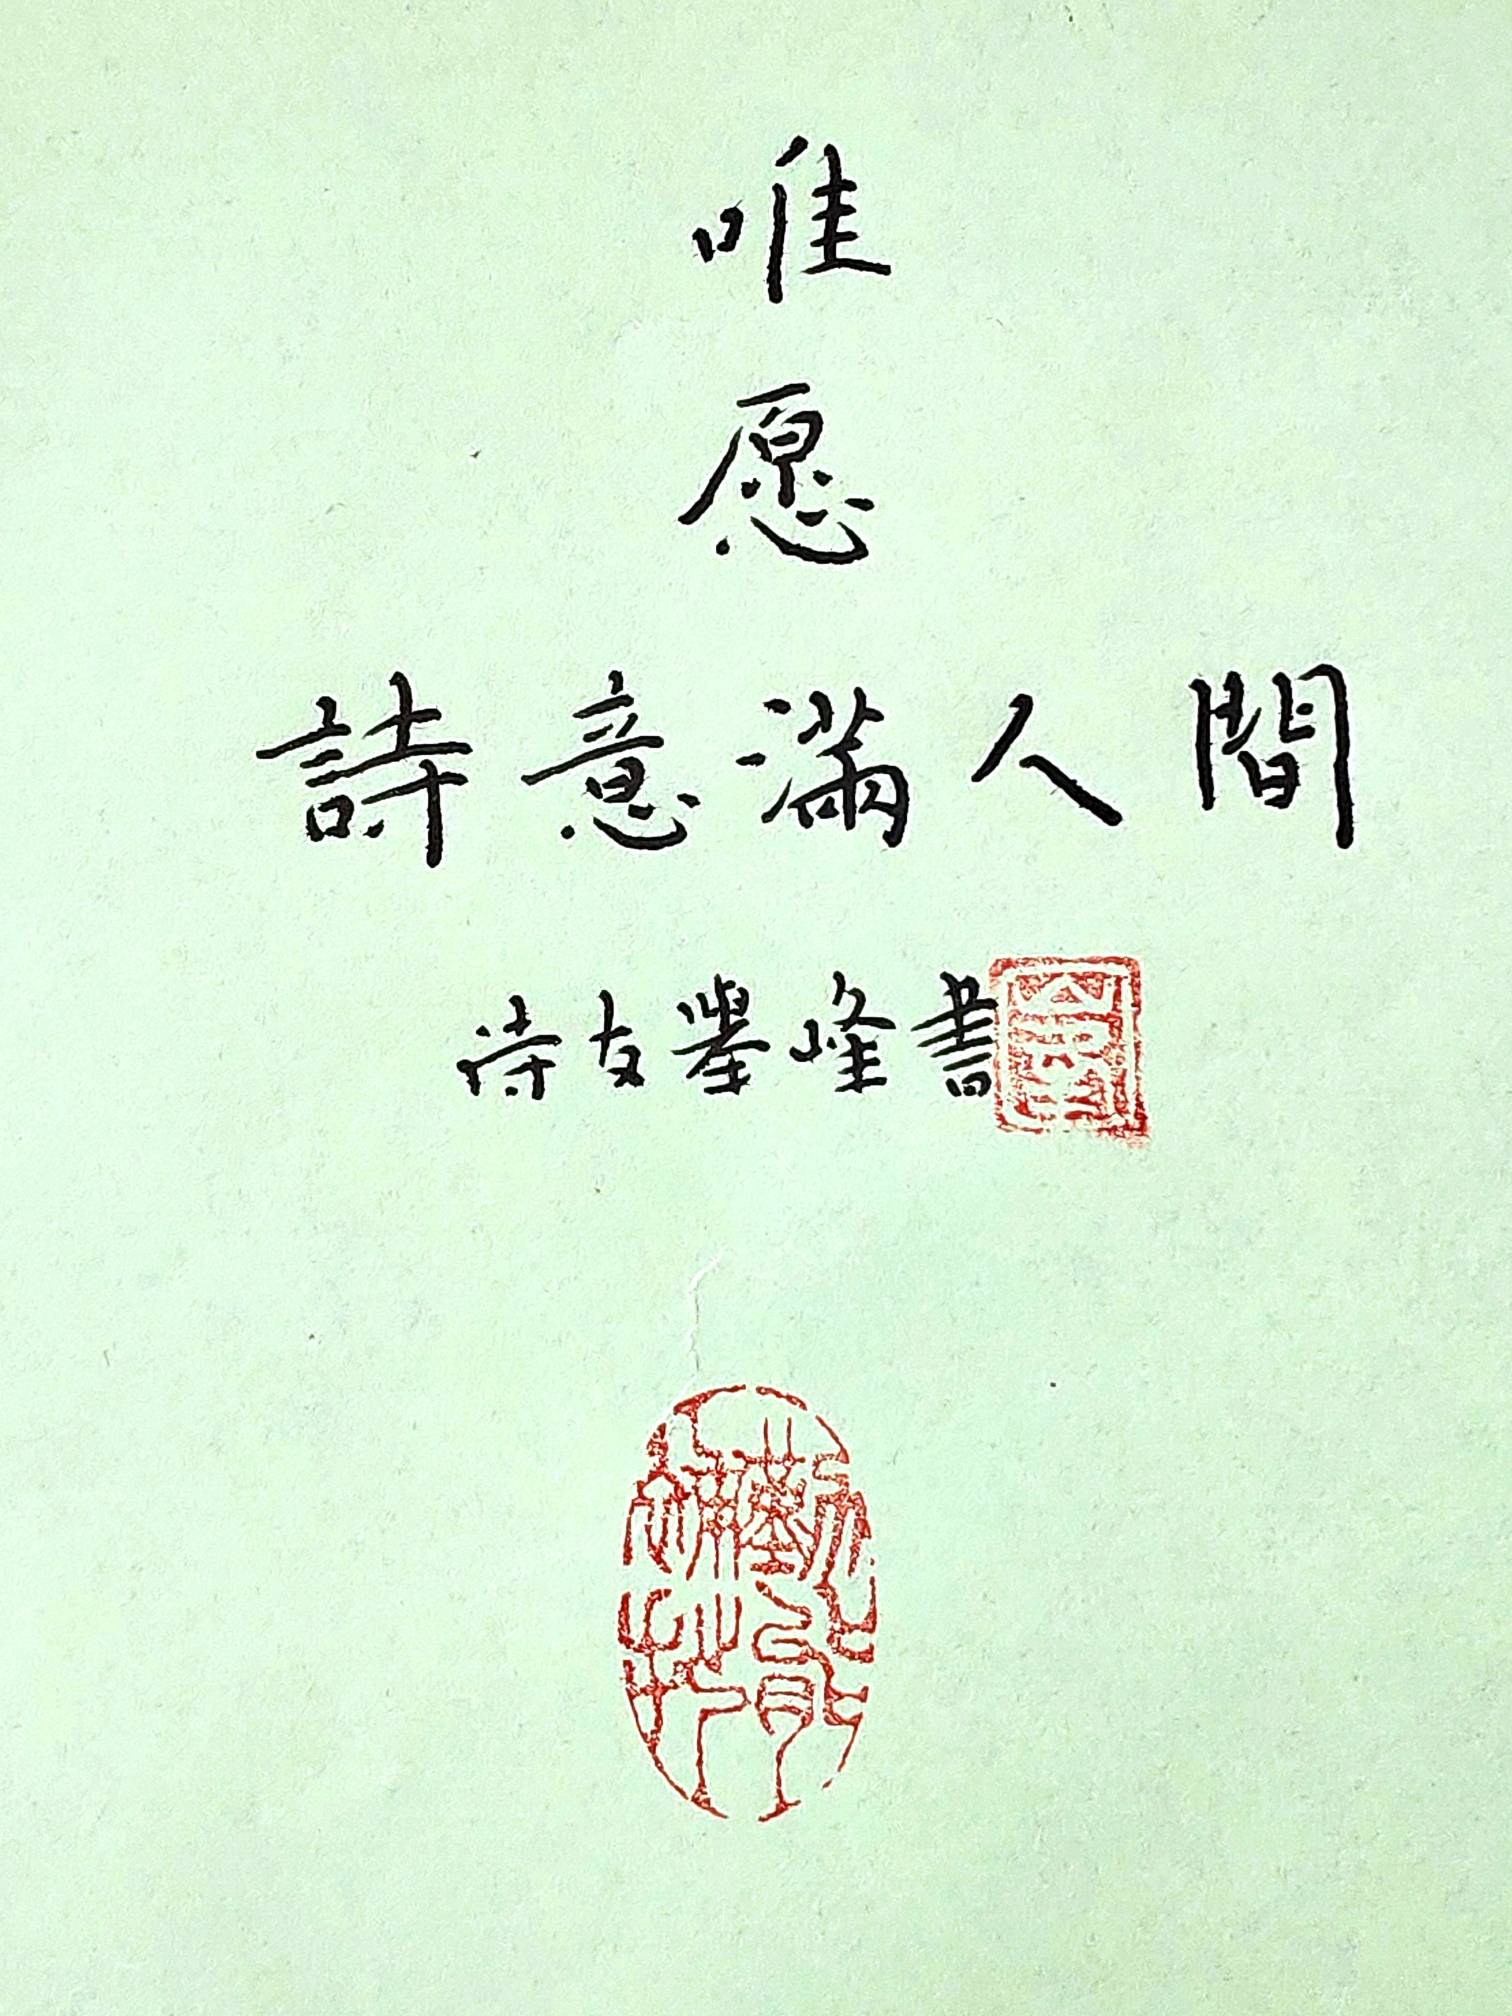 唯
愿
詩意满人間
诗友举峰書